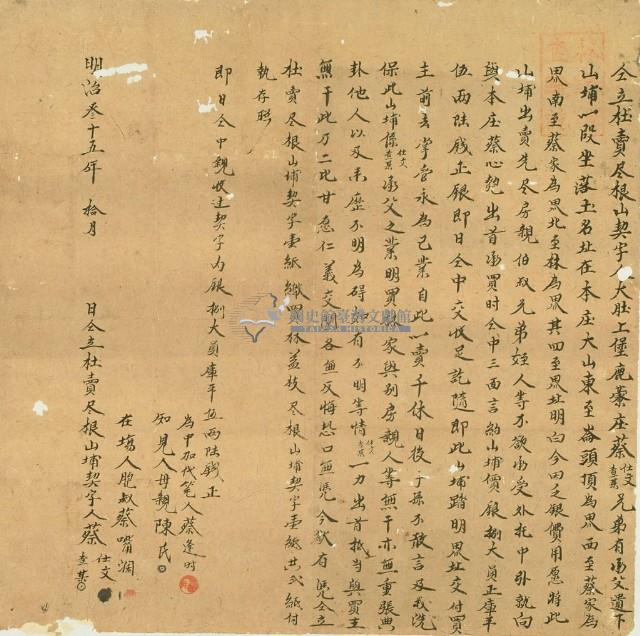 仝立杜賣尽根山契字人大肚上堡鹿藔庄蔡仕文查某兄弟有承父遺下
山埔一段坐落土名址在本庄大山東至崙頭頂為界西至蔡家為
界南至蔡家為界北至林為界其四至界址明白今因乏銀費用愿將此
山埔出賣先尽房親伯叔兄弟姪人等不欲承受外托中外就向
與本庄蔡心匏出首承買时仝中三面言約山埔價銀捌大員正庫平
伍兩陸錢正銀即日仝中交收足訖隨即此山埔踏明界址交付買
主前去掌管永為己業自此一賣千休日後子孫不敢言及我洗
保此山埔係仕文查某承父之業明買 家與別房親人等無干亦無重張典
卦他人以及來歷不明為碍 有不明等情仕文查某一力出首抵当與買主
無干此乃二比甘愿仁義交關各無反悔恐口無凭今欲有凭仝立
杜賣尽根山埔契字壹紙繳 尽根山埔契字壹紙共弍紙付
執存照
即日仝中親收过契字內銀捌大員庫平伍兩陸錢正
為中加代筆人蔡逢时
知見人母親陳氏
在塲人胞叔蔡嘴
明治叁十五年 拾月 日仝立杜賣尽根山埔契字人蔡仕文查某
國史館臺灣文獻館
TAIWAN HISTORICA